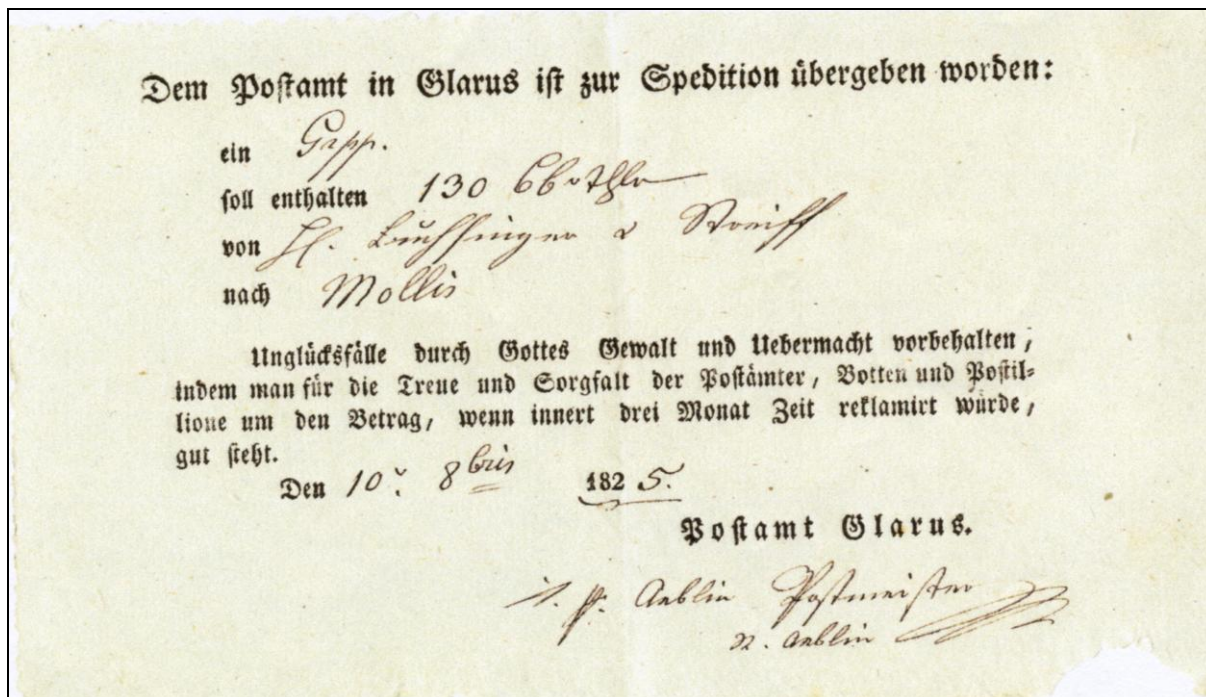 Dem Postamt in Glarus ist zur Spedition übergeben worden:
ein Grpp.
soll enthalten 130 Bbrthlr
von Hh. Luchsinger & Streiff
nach Mollis
Unglücksfälle durch Gottes Gewalt und Uebermacht vorbehalten,
indem man für die Treue und Sorgfalt der Postämter, Botten und Postil-
lione um den Betrag, wenn innert drei Monat Zeit reklamirt würde,
gut steht.
Den 10. 8bris 1825.
Postamt Glarus.
Aeblin Postmeister
N. Aeblin